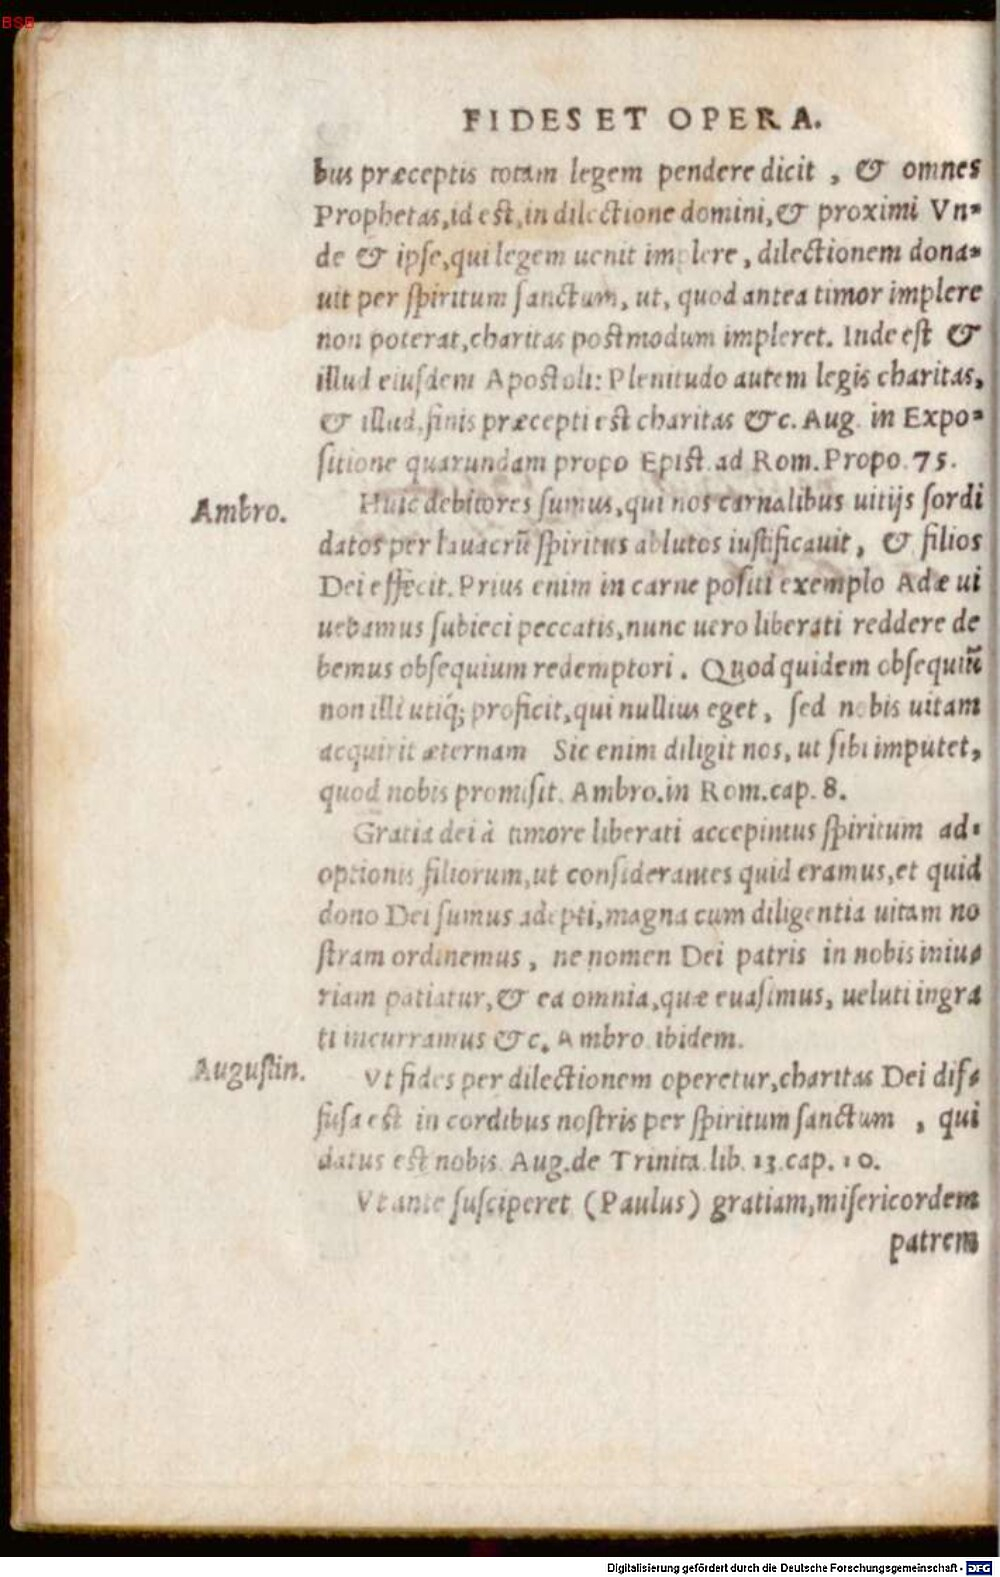 BSB
FIDES ET OPERA.
bus præceptis totam legem pendere dicit, & omnes
Prophetas, id est, in dilectione domini, & proximi Vn=
de & ipse, qui legem uenit implere, dilectionem dona=
uit per spiritum sanctum, ut, quod antea timor implere
non poterat, charitas postmodum impleret. Inde est &
illud eiusdem Apostoli: Plenitudo autem legis charitas,
& illud, finis præcepti est charitas &c. Aug. in Expo=
sitione quarundam propo Epist. ad Rom. Propo. 75.
Ambro.
Huic debitores sumus, qui nos carnalibus uitijs sordi
datos per lauacrũ spiritus ablutos iustificauit, & filios
Dei effecit. Prius enim in carne positi exemplo Adæ ui
uebamus subieci peccatis, nunc uero liberati reddere de
bemus obsequium redemptori. Quod quidem obsequiũ
non illi utiq; proficit, qui nullius eget, sed nobis uitam
acquirit æternam Sic enim diligit nos, ut sibi imputet,
quod nobis promisit. Ambro. in Rom. cap. 8.
Gratia dei à timore liberati accepimus spiritum ad=
optionis filiorum, ut considerantes quid eramus, et quid
dono Dei sumus adepti, magna cum diligentia uitam no
stram ordinemus, ne nomen Dei patris in nobis iniu=
riam patiatur, & ea omnia, quæ euasimus, ueluti ingra
ti incurramus &c. Ambro ibidem.
Augustin.
Vt fides per dilectionem operetur, charitas Dei dif=
fusa est in cordibus nostris per spiritum sanctum, qui
datus est nobis. Aug. de Trinita. lib. 13. cap. 10.
Vt ante susciperet (Paulus) gratiam, misericordem
patrem
Digitalisierung gefördert durch die Deutsche Forschungsgemeinschaft - DFG